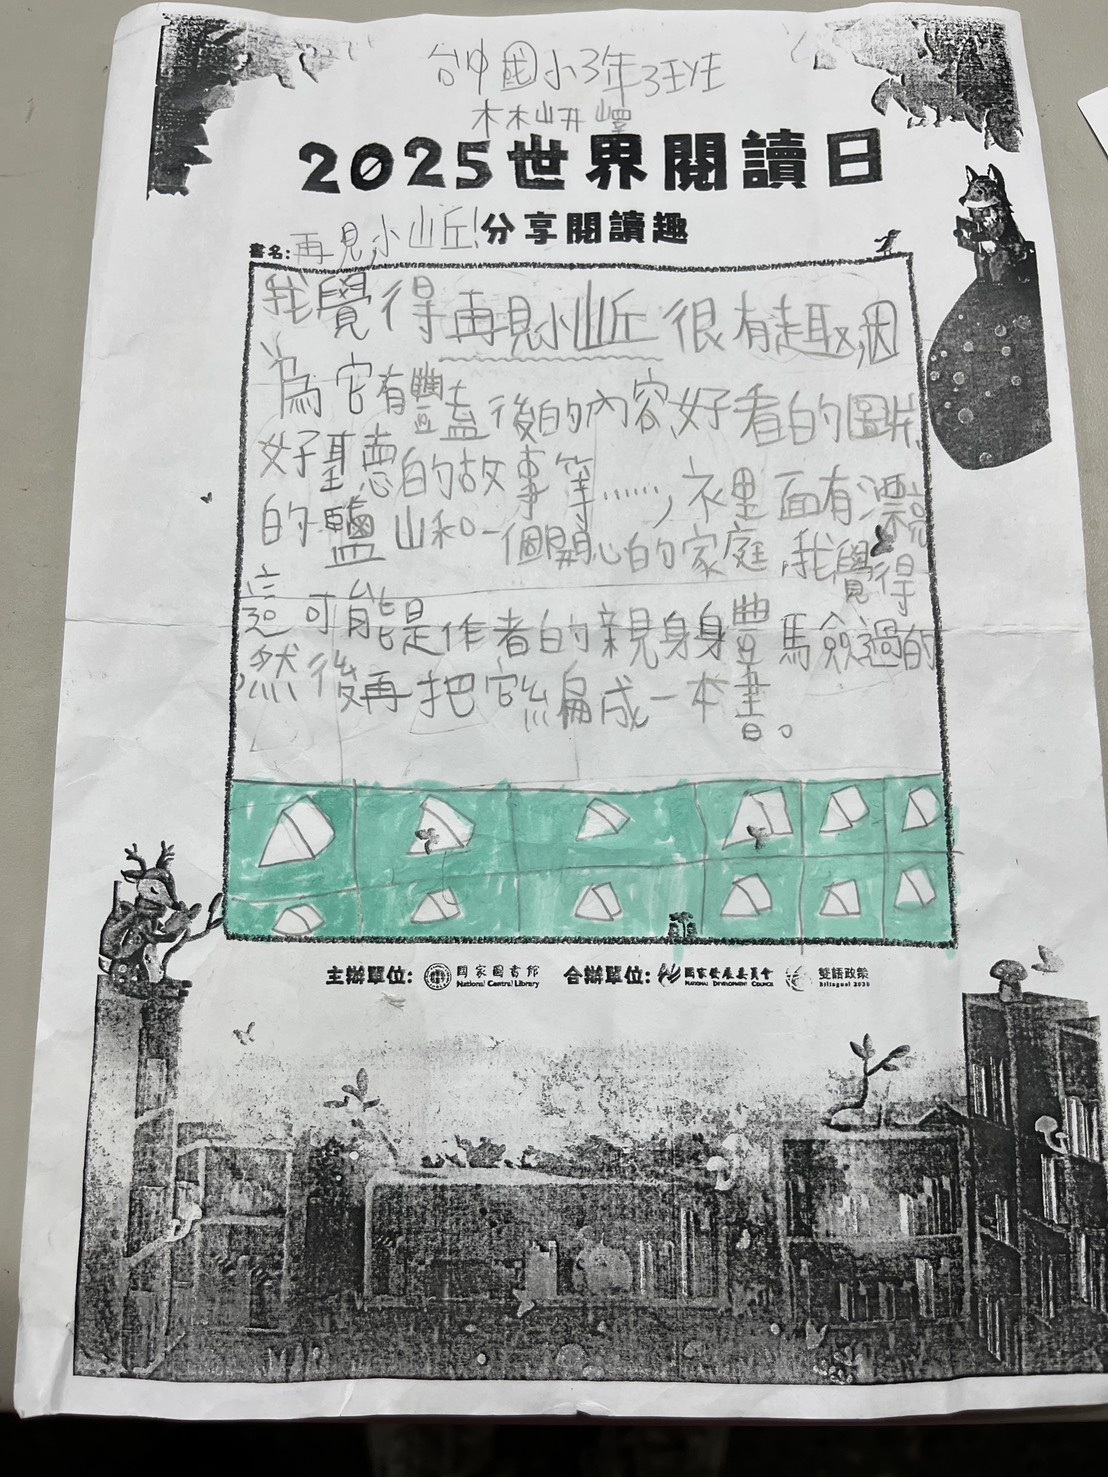 台中國小3年3班
林妍嶧
2025世界閱讀日
分享閱讀趣
書名:再見小山丘!
我覺得再見小山丘很有趣,因
為它有豐盍後的內容、好看的圖片、
好聖惪的故事等……,裡面有漂亮
的鹽山和一個開心的家庭,我覺得
這可能是作者的親身身豐馬僉過的
,然後再把它編成一本書。
主辦單位: 國家圖書館 National Central Library 合辦單位: 國家發展委員會 National Development Council 雙語政策 Bilingual 2030